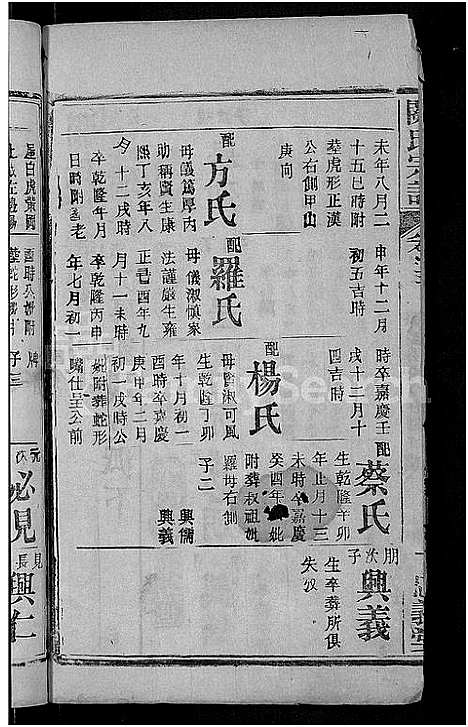 未年八月二
十五巳時附
葬虎形正漢
公右側甲山
庚向
配方氏
母儀篤厚丙
助稱賢生康
熙丁亥年八
今十二戌時
卒乾隆年月
日時附
申年十二月
初五吉時
配羅氏
母儀淑慎家
法謹嚴生雍
正己酉年九
月十一未時
卒乾隆丙申
年七月初一
時卒嘉慶壬
戌十二月十
四吉時
配楊氏
母賢淑可風
生乾隆丁卯
年十月初一
酉時卒嘉慶
庚申年二月
初一戌時公
妣附葬蛇形
嘴仕呈公前
配蔡氏
生乾隆辛卯
年正月十三
未時卒嘉慶
癸酉年 妣
附葬叔祖妣
羅母右側
子二
興儒
興義
朋次子
興義
生卒葬所俱
失攷
必見
見長
興仁